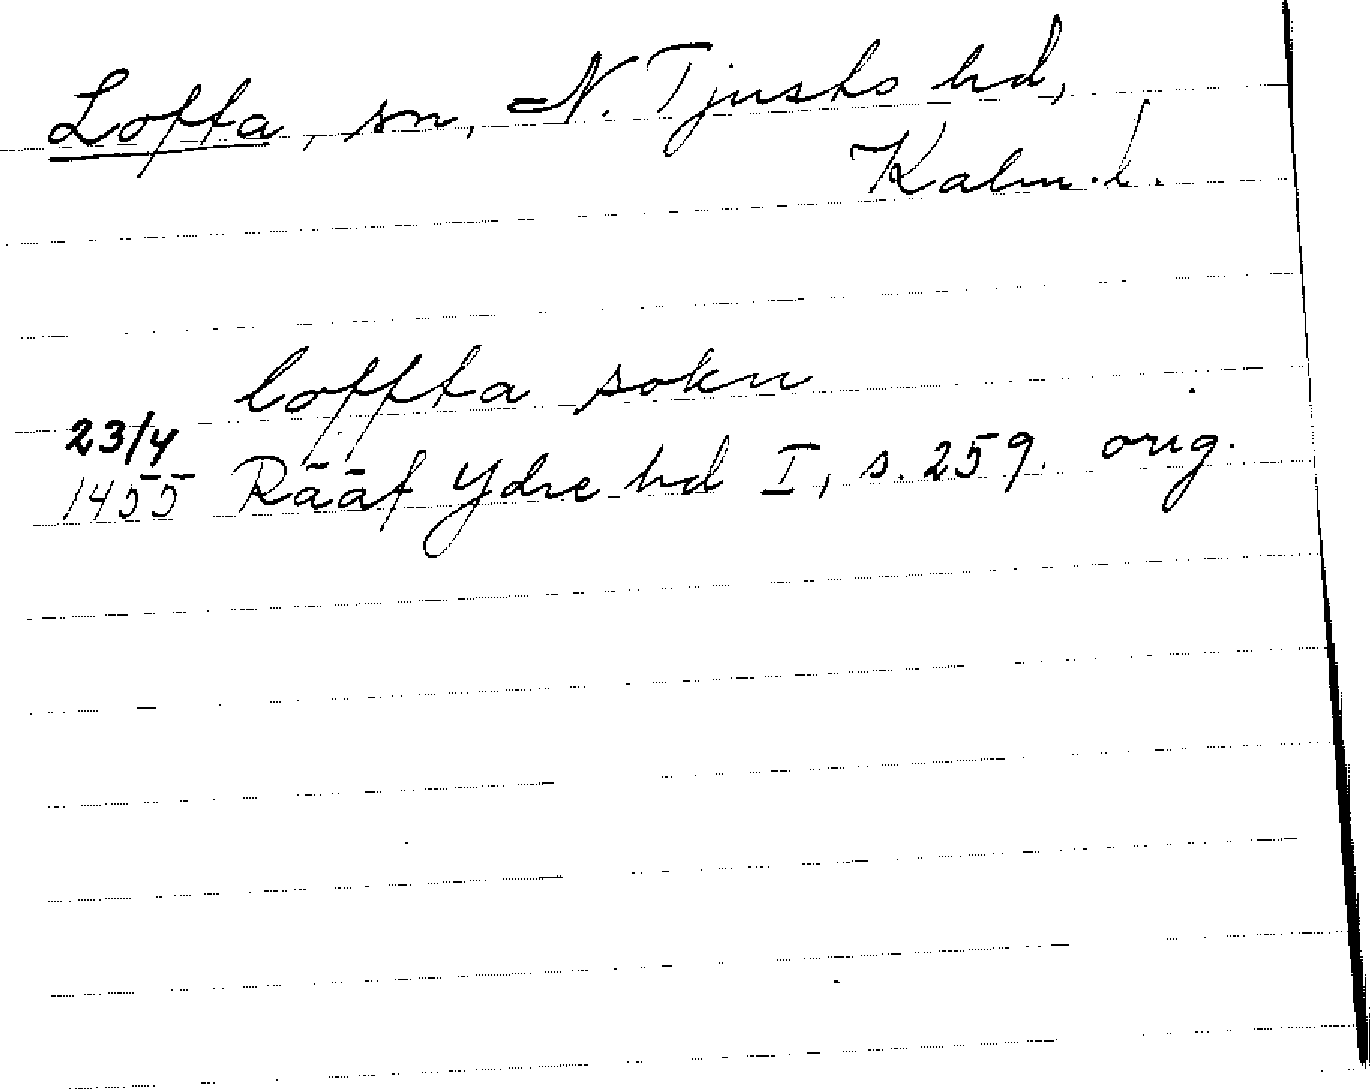 Lofta, sn, N. Tjusts hd,
Kalm. l.
loffta sokn
23/4
1455 Rääf Ydre hd I, s. 259. orig.